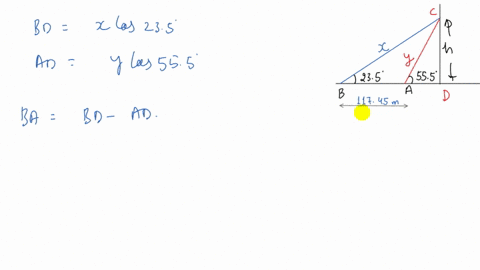 BD = x cos 23.5°
AD = y cos 55.5°
BA = BD - AD.
C
x
y
h
23.5°
55.5°
B
A
D
117.45 m